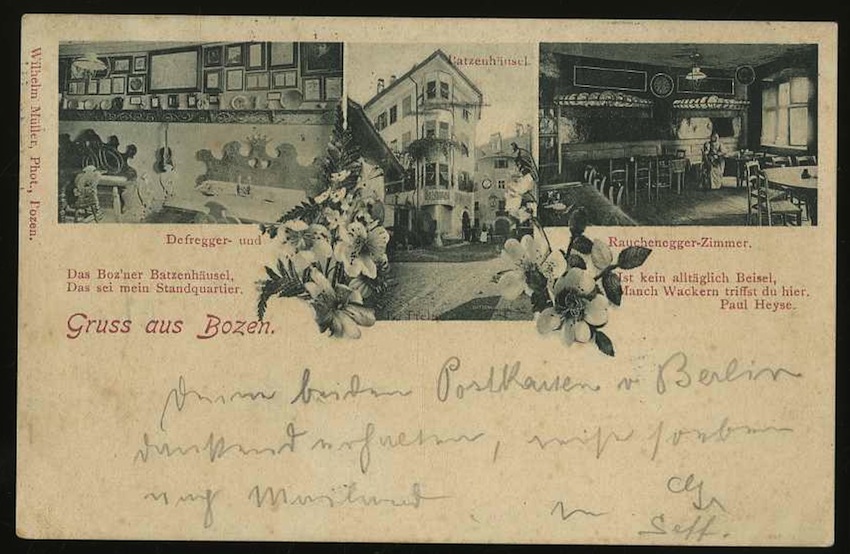 Wilhelm Müller, Phot., Bozen.
Batzenhäusel.
Defregger- und
Rauchenegger-Zimmer.
Das Boz'ner Batzenhäusel,
Das sei mein Standquartier.
Ist kein alltäglich Beisel,
Manch Wackern triffst du hier.
Paul Heyse.
Gruss aus Bozen.
Deine beiden Postkarten v Berlin
dankend erhalten, reise soeben
nach Mailand.
Gr